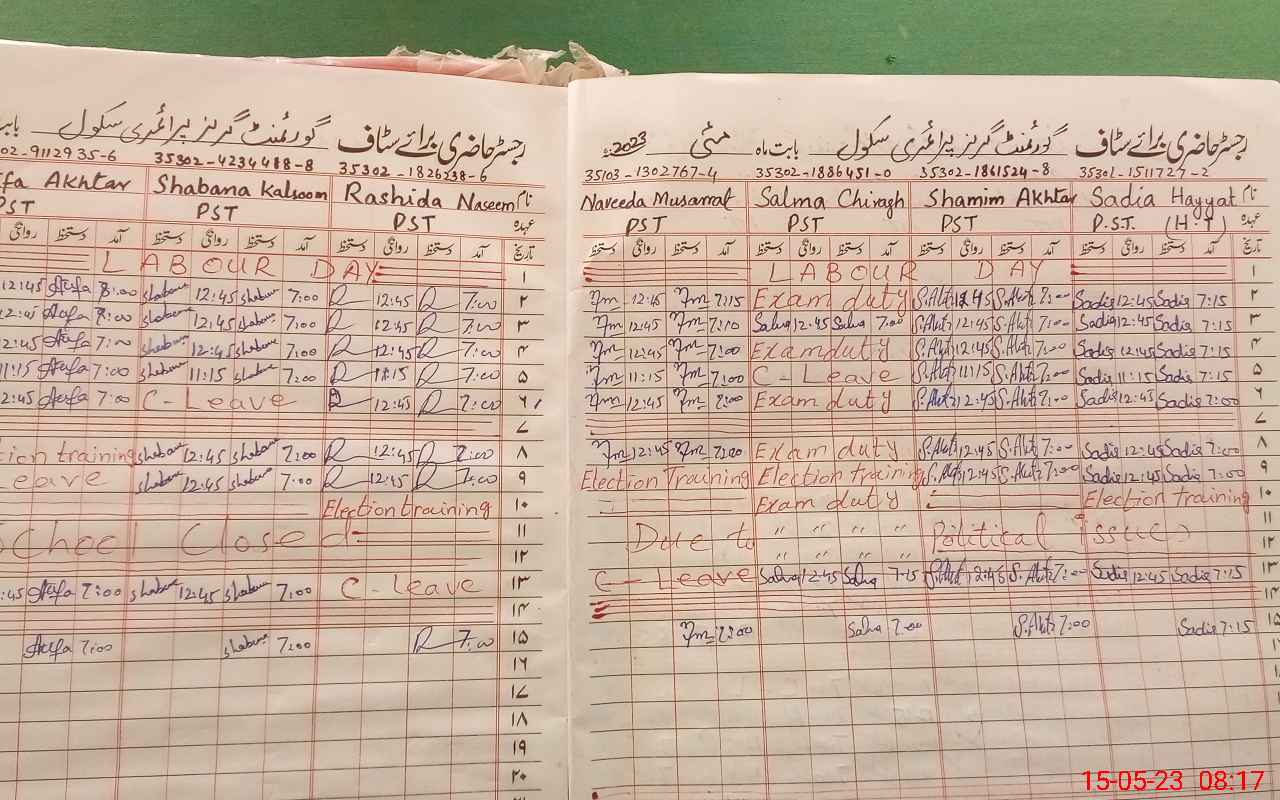 رجسٹر حاضری برائے سٹاف گورنمنٹ گرلز پرائمری سکول
02-9112935-6 35302-4234488-8 35302-1826238-6
Akhtar Shabana Kalsoom Rashida Naseem
PST PST PST
روانگی دستخط آمد دستخط روانگی دستخط آمد دستخط روانگی دستخط آمد تاریخ
LABOUR DAY ۱
12:45 Atefa 8:00 Shabana 12:45 Shabana 7:00 R 12:45 R 7:00 ۲
Atefa 7:00 Shabana 12:45 Shabana 7:00 R 12:45 R 7:00 ۳
2:45 Atefa 7:00 Shabana 12:45 Shabana 7:00 R 12:45 R 7:00 ۴
11:15 Atefa 7:00 Shabana 11:15 Shabana 7:00 R 11:15 R 7:00 ۵
2:45 Atefa 7:00 C-Leave R 12:45 R 7:00 ۶
۷
tion training Shabana 12:45 Shabana 7:00 R 12:45 R 7:00 ۸
eave Shabana 12:45 Shabana 7:00 R 12:45 R 7:00 ۹
Election training ۱۰
School Closed ۱۱
۱۲
:45 Atefa 7:00 Shabana 12:45 Shabana 7:00 C-Leave ۱۳
۱۴
Atefa 7:00 Shabana 7:00 R 7:00 ۱۵
۱۶
۱۷
۱۸
۱۹
۲۰
رجسٹر حاضری برائے سٹاف گورنمنٹ گرلز پرائمری سکول بابت ماہ مئی 2023ء
35103-1302767-4 35302-1886451-0 35302-1861524-8 35301-1511727-2
Naveeda Musarrat Salma Chiragh Shamim Akhtar Sadia Hayyat نام
PST PST PST P.S.T. (H.T) عہدہ
دستخط روانگی دستخط آمد دستخط روانگی دستخط آمد دستخط روانگی دستخط آمد دستخط روانگی دستخط آمد تاریخ
LABOUR DAY ۱
12:45 7:15 Exam duty S.Akt 12:45 S.Akt 7:00 Sadia 12:45 Sadia 7:15 ۲
12:45 7:10 Salma 12:45 Salma 7:00 S.Akt 12:45 S.Akt 7:00 Sadia 12:45 Sadia 7:15 ۳
12:45 7:00 Exam duty S.Akt 12:45 S.Akt 7:00 Sadia 12:45 Sadia 7:15 ۴
11:15 7:00 C-Leave S.Akt 11:15 S.Akt 7:00 Sadia 11:15 Sadia 7:15 ۵
12:45 7:00 Exam duty S.Akt 12:45 S.Akt 7:00 Sadia 12:45 Sadia 7:00 ۶
۷
12:45 7:00 Exam duty S.Akt 12:45 S.Akt 7:00 Sadia 12:45 Sadia 7:00 ۸
Election Training Election training S.Akt 12:45 S.Akt 7:00 Sadia 12:45 Sadia 7:00 ۹
Exam duty Election training ۱۰
Due to " " " " Political issues ۱۱
" " " " ۱۲
C-Leave Salma 12:45 Salma 7-15 S.Akt 12:45 S.Akt 7:00 Sadia 12:45 Sadia 7:15 ۱۳
۱۴
7:00 Salma 7:00 S.Akt 7:00 Sadia 7:15 ۱۵
15-05-23 08:17